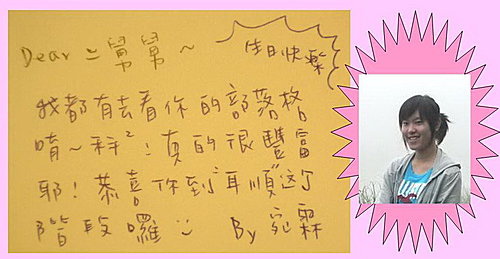 Dear 二舅舅~
生日快樂
我都有去看你的部落格
唷~科²!真的很豐富
耶!恭喜你到"耳順"這
階段囉 By 宛霖